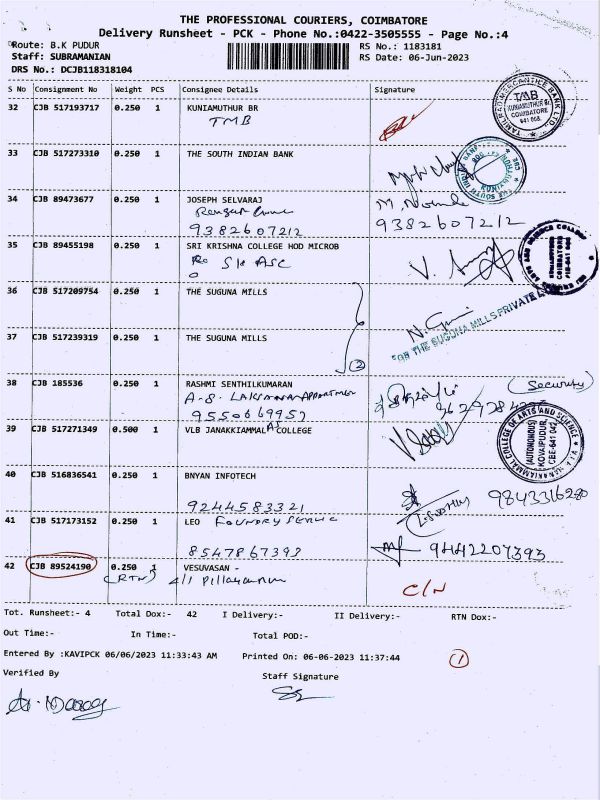 THE PROFESSIONAL COURIERS, COIMBATORE
Delivery Runsheet - PCK - Phone No.:0422-3505555 - Page No.:4
Route: B.K PUDUR RS No.: 1183181
Staff: SUBRAMANIAN RS Date: 06-Jun-2023
DRS No.: DCJB118318104
S No Consignment No Weight PCS Consignee Details Signature
32 CJB 517193717 0.250 1 KUNIAMUTHUR BR
TMB
TAMILNAD MERCANTILE BANK LTD. TMB KUNIAMUTHUR Br. COIMBATORE 641 008.
33 CJB 517273310 0.250 1 THE SOUTH INDIAN BANK
34 CJB 89473677 0.250 1 JOSEPH SELVARAJ
9382607212 9382607212
35 CJB 89455198 0.250 1 SRI KRISHNA COLLEGE HOD MICROB
SK ASC
36 CJB 517209754 0.250 1 THE SUGUNA MILLS
FOR THE SUGUNA MILLS PRIVATE
37 CJB 517239319 0.250 1 THE SUGUNA MILLS
2
38 CJB 185536 0.250 1 RASHMI SENTHILKUMARAN (Security)
9550669952
39 CJB 517271349 0.500 1 VLB JANAKKIAMMAL COLLEGE
JANAKIAMMAL COLLEGE OF ARTS AND SCIENCE (AUTONOMOUS) KOVAIPUDUR, CBE-641 042
40 CJB 516836541 0.250 1 BNYAN INFOTECH
9244583321 9843316280
41 CJB 517173152 0.250 1 LEO FOUNDRY
8547867393 9442207393
42 CJB 89524190 0.250 1 VESUVASAN -
(RTN) C/N
Tot. Runsheet:- 4 Total Dox:- 42 I Delivery:- II Delivery:- RTN Dox:-
Out Time:- In Time:- Total POD:-
Entered By :KAVIPCK 06/06/2023 11:33:43 AM Printed On: 06-06-2023 11:37:44 1
Verified By Staff Signature